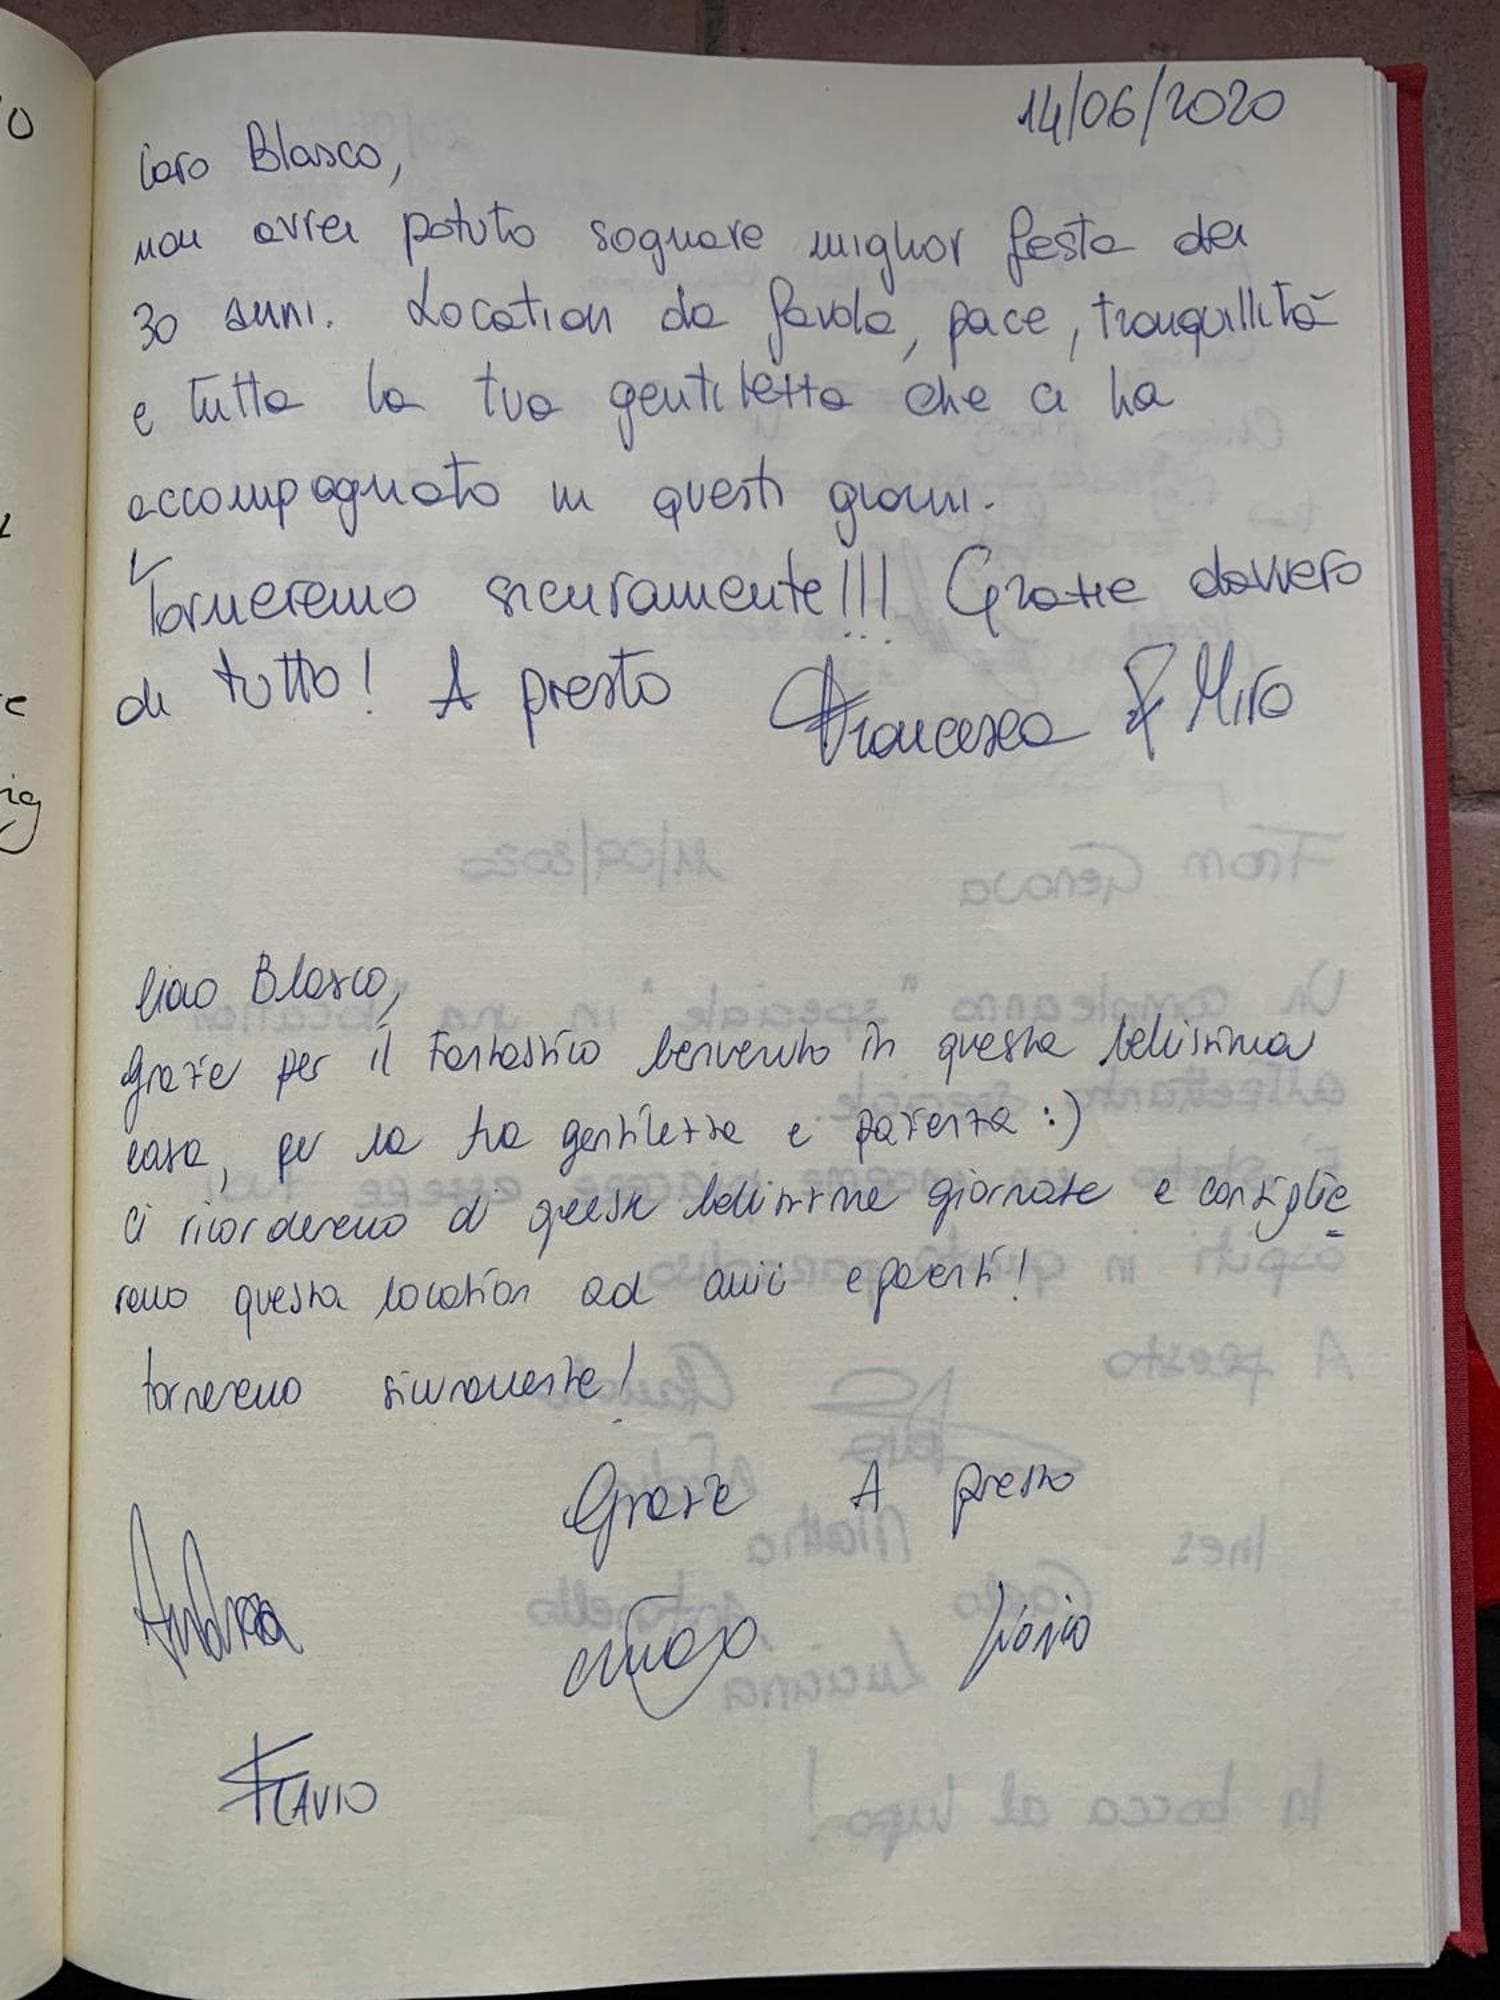 14/06/2020
Caro Blasco,
non avrei potuto sognare miglior festa dei
30 anni. Location da favola, pace, tranquillità
e tutta la tua gentilezza che ci ha
accompagnato in questi giorni.
Torneremo sicuramente!!! Grazie davvero
di tutto! A presto Francesca & Miro
Ciao Blasco,
grazie per il fantastico benvenuto in questa bellissima
casa, per la tua gentilezza e pazienza :)
ci ricorderemo di queste bellissime giornate e consiglie
remo questa location ad amici e parenti!
torneremo sicuramente!
Grazie A presto
Andrea
FLAVIO